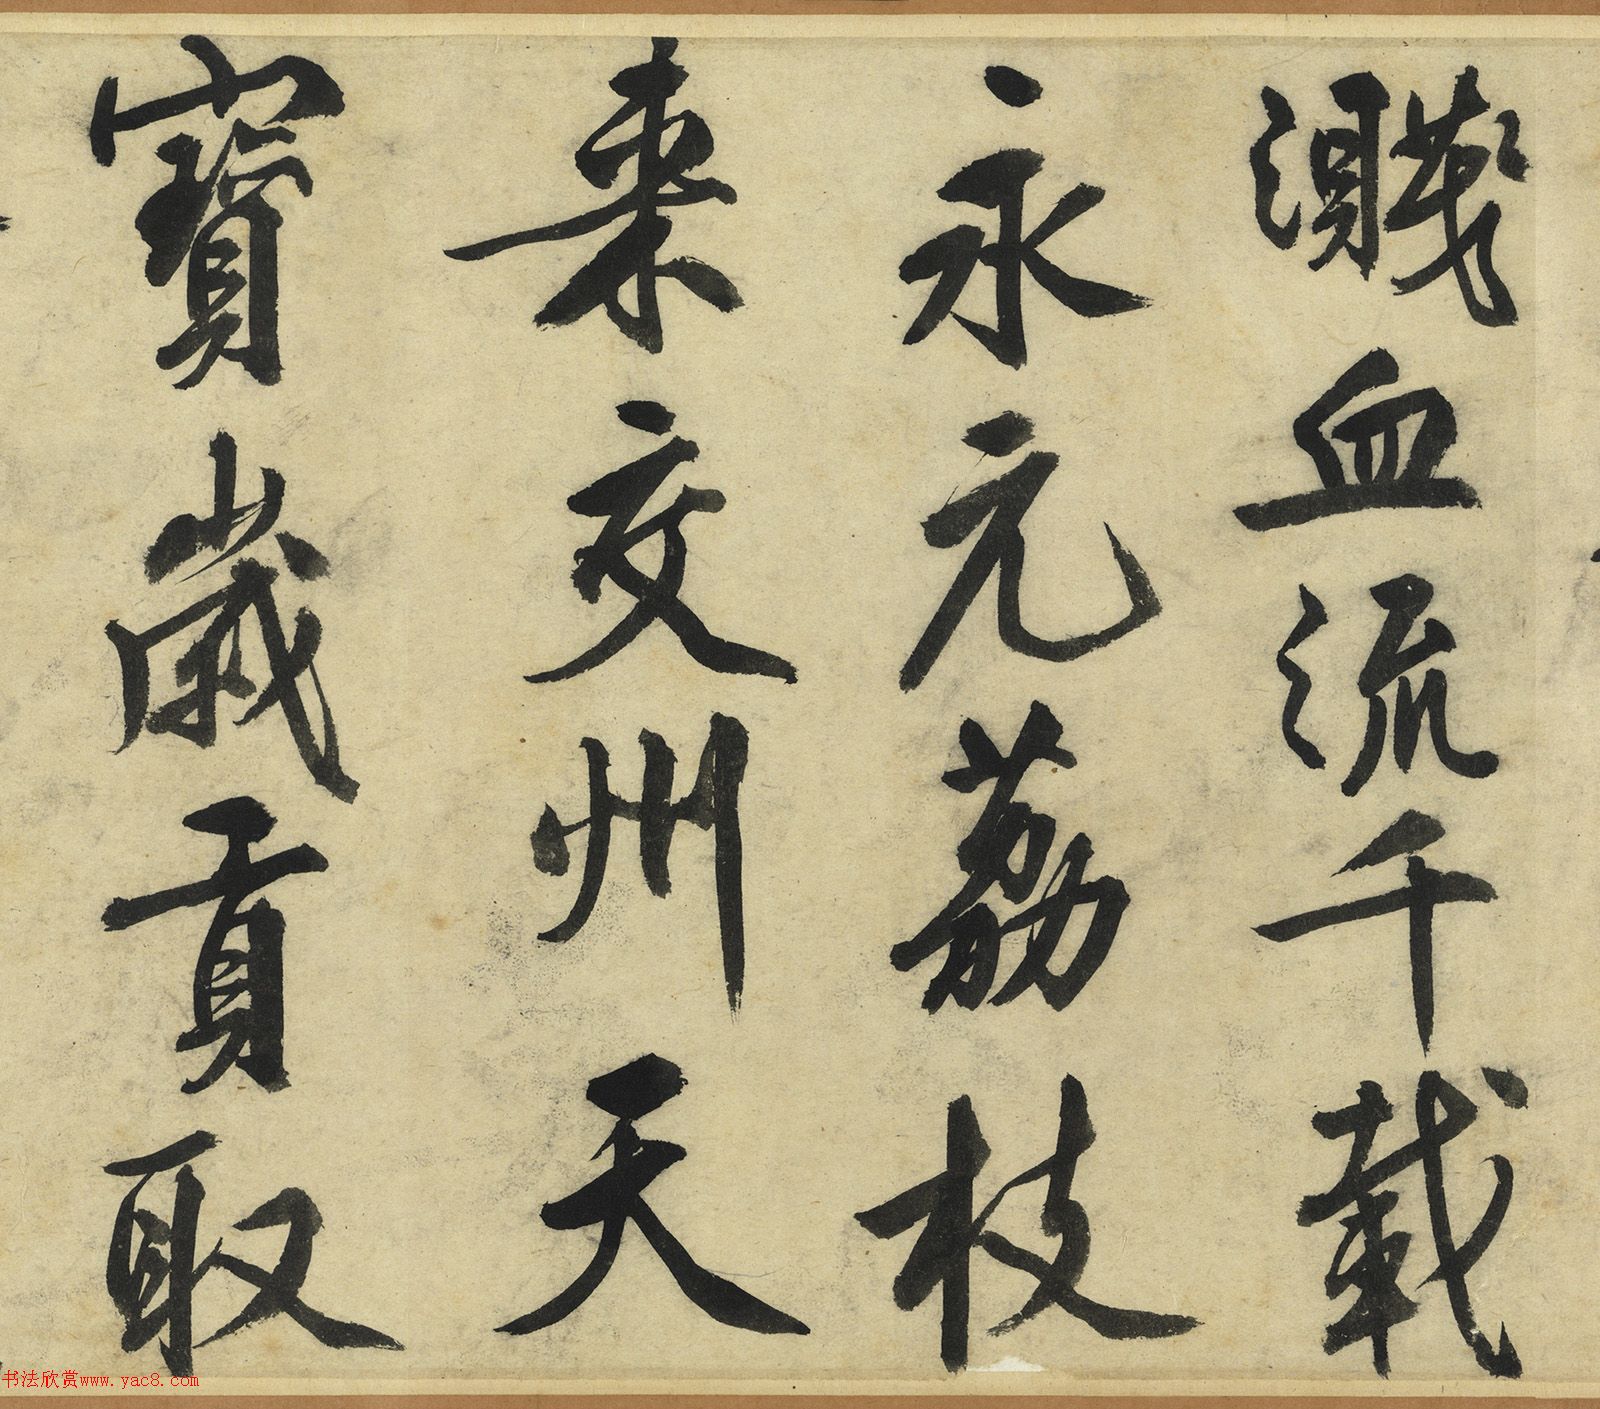 濺血流千載
永元荔枝
来交州天
寳歳貢取
书法欣赏www.yac8.com